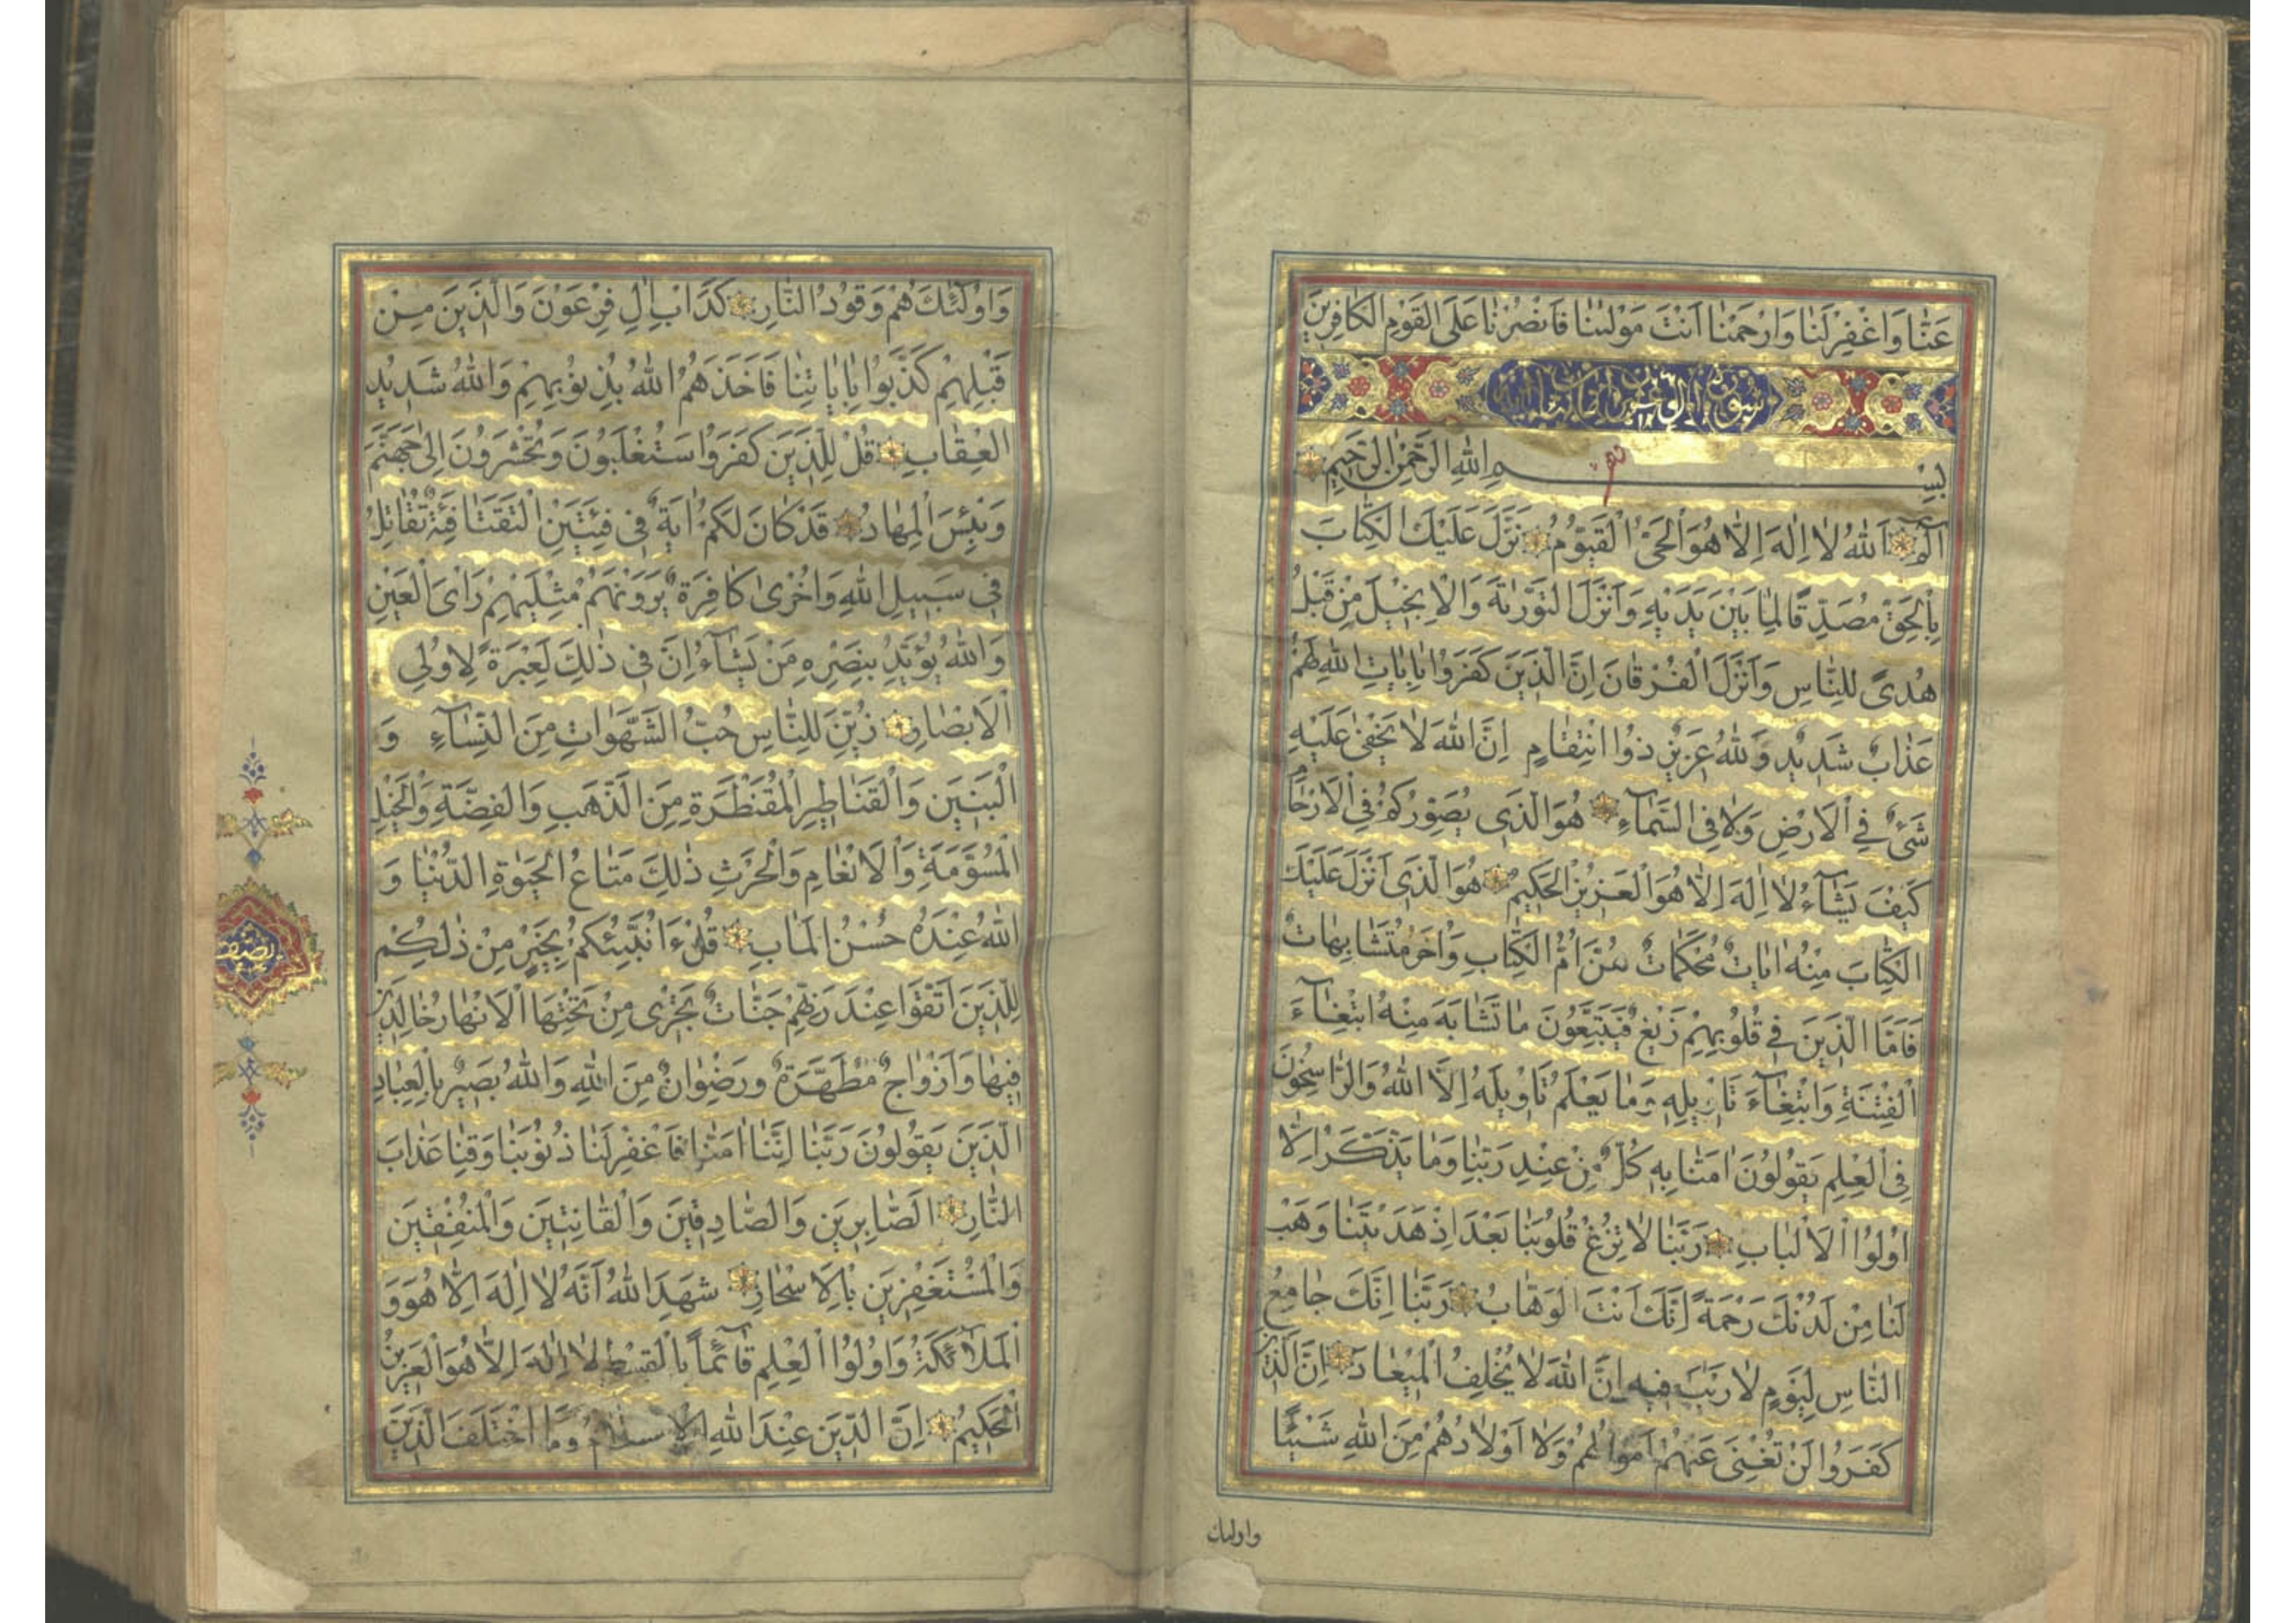 عَنَّا وَاغْفِرْ لَنَا وَارْحَمْنَا اَنْتَ مَوْلٰينَا فَانْصُرْنَا عَلَى الْقَوْمِ الْكَافِرِينَ
سورة ال
بِسْمِ اللهِ الرَّحْمٰنِ الرَّحِيمِ
الٓمٓ اَللهُ لَا اِلٰهَ اِلَّا هُوَ الْحَىُّ الْقَيُّومُ نَزَّلَ عَلَيْكَ الْكِتَابَ
بِالْحَقِّ مُصَدِّقًا لِمَا بَيْنَ يَدَيْهِ وَاَنْزَلَ التَّوْرٰيةَ وَالْاِنْجِيلَ مِنْ قَبْلُ
هُدىً لِلنَّاسِ وَاَنْزَلَ الْفُرْقَانَ اِنَّ الَّذِينَ كَفَرُوا بِاٰيَاتِ اللهِ لَهُمْ
عَذَابٌ شَدِيدٌ وَاللهُ عَزِيزٌ ذُوا انْتِقَامٍ اِنَّ اللهَ لَا يَخْفٰى عَلَيْهِ
شَىْءٌ فِي الْاَرْضِ وَلَا فِى السَّمَآءِ هُوَ الَّذِى يُصَوِّرُكُمْ فِى الْاَرْحَامِ
كَيْفَ يَشَآءُ لَا اِلٰهَ اِلَّا هُوَ الْعَزِيزُ الْحَكِيمُ هُوَ الَّذِى اَنْزَلَ عَلَيْكَ
الْكِتَابَ مِنْهُ اٰيَاتٌ مُحْكَمَاتٌ هُنَّ اُمُّ الْكِتَابِ وَاُخَرُ مُتَشَابِهَاتٌ
فَاَمَّا الَّذِينَ فِي قُلُوبِهِمْ زَيْغٌ فَيَتَّبِعُونَ مَا تَشَابَهَ مِنْهُ ابْتِغَآءَ
الْفِتْنَةِ وَابْتِغَآءَ تَاْوِيلِهِ وَمَا يَعْلَمُ تَاْوِيلَهُ اِلَّا اللهُ وَالرَّاسِخُونَ
فِى الْعِلْمِ يَقُولُونَ اٰمَنَّا بِهِ كُلٌّ مِنْ عِنْدِ رَبِّنَا وَمَا يَذَّكَّرُ اِلَّا
اُولُوا الْاَلْبَابِ رَبَّنَا لَا تُزِغْ قُلُوبَنَا بَعْدَ اِذْ هَدَيْتَنَا وَهَبْ
لَنَا مِنْ لَدُنْكَ رَحْمَةً اِنَّكَ اَنْتَ الْوَهَّابُ رَبَّنَا اِنَّكَ جَامِعُ
النَّاسِ لِيَوْمٍ لَا رَيْبَ فِيهِ اِنَّ اللهَ لَا يُخْلِفُ الْمِيعَادَ اِنَّ الَّذِينَ
كَفَرُوا لَنْ تُغْنِىَ عَنْهُمْ اَمْوَالُهُمْ وَلَا اَوْلَادُهُمْ مِنَ اللهِ شَيْئًا
واولئك
وَاُولٰٓئِكَ هُمْ وَقُودُ النَّارِ كَدَاْبِ اٰلِ فِرْعَوْنَ وَالَّذِينَ مِنْ
قَبْلِهِمْ كَذَّبُوا بِاٰيَاتِنَا فَاَخَذَهُمُ اللهُ بِذُنُوبِهِمْ وَاللهُ شَدِيدُ
الْعِقَابِ قُلْ لِلَّذِينَ كَفَرُوا سَتُغْلَبُونَ وَتُحْشَرُونَ اِلٰى جَهَنَّمَ
وَبِئْسَ الْمِهَادُ قَدْ كَانَ لَكُمْ اٰيَةٌ فِى فِئَتَيْنِ الْتَقَتَا فِئَةٌ تُقَاتِلُ
فِى سَبِيلِ اللهِ وَاُخْرٰى كَافِرَةٌ يَرَوْنَهُمْ مِثْلَيْهِمْ رَاْىَ الْعَيْنِ
وَاللهُ يُؤَيِّدُ بِنَصْرِهِ مَنْ يَشَآءُ اِنَّ فِى ذٰلِكَ لَعِبْرَةً لِاُولِى
الْاَبْصَارِ زُيِّنَ لِلنَّاسِ حُبُّ الشَّهَوَاتِ مِنَ النِّسَآءِ وَ
الْبَنِينَ وَالْقَنَاطِيرِ الْمُقَنْطَرَةِ مِنَ الذَّهَبِ وَالْفِضَّةِ وَالْخَيْلِ
الْمُسَوَّمَةِ وَالْاَنْعَامِ وَالْحَرْثِ ذٰلِكَ مَتَاعُ الْحَيٰوةِ الدُّنْيَا وَ
اللهُ عِنْدَهُ حُسْنُ الْمَاٰبِ قُلْ ءَاُنَبِّئُكُمْ بِخَيْرٍ مِنْ ذٰلِكُمْ
لِلَّذِينَ اتَّقَوْا عِنْدَ رَبِّهِمْ جَنَّاتٌ تَجْرِى مِنْ تَحْتِهَا الْاَنْهَارُ خَالِدِينَ
فِيهَا وَاَزْوَاجٌ مُطَهَّرَةٌ وَرِضْوَانٌ مِنَ اللهِ وَاللهُ بَصِيرٌ بِالْعِبَادِ
الَّذِينَ يَقُولُونَ رَبَّنَا اِنَّنَا اٰمَنَّا فَاغْفِرْ لَنَا ذُنُوبَنَا وَقِنَا عَذَابَ
النَّارِ الصَّابِرِينَ وَالصَّادِقِينَ وَالْقَانِتِينَ وَالْمُنْفِقِينَ
وَالْمُسْتَغْفِرِينَ بِالْاَسْحَارِ شَهِدَ اللهُ اَنَّهُ لَا اِلٰهَ اِلَّا هُوَ وَ
الْمَلَآئِكَةُ وَاُولُوا الْعِلْمِ قَآئِمًا بِالْقِسْطِ لَا اِلٰهَ اِلَّا هُوَ الْعَزِيزُ
الْحَكِيمُ اِنَّ الدِّينَ عِنْدَ اللهِ الْاِسْلَامُ وَمَا اخْتَلَفَ الَّذِينَ
نصف